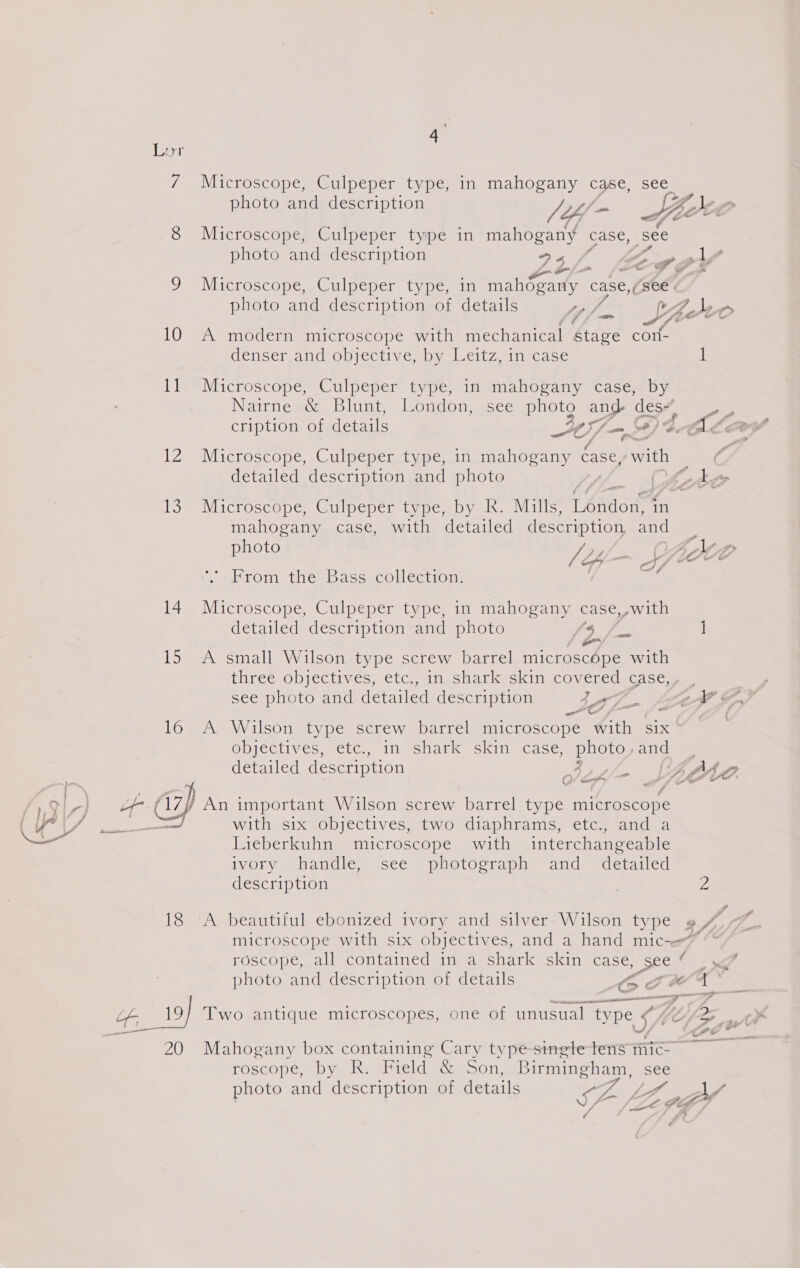 4
Lot
7 Microscope, Culpeper type, in mahogany case, see
photo and description
8 Microscope, Culpeper type in mahogany case, see
photo and description
9 Microscope, Culpeper type, in mahogany case, see
photo and description of details
10 A modern microscope with mechanical stage con-
denser and objective, by Leitz, in case 1
11 Microscope, Culpeper type, in mahogany case, by
Nairne & Blunt, London, see photo and des-
cription of details
12 Microscope, Culpeper type, in mahogany case, with
detailed description and photo
13 Microscope, Culpeper type, by R. Mills, London, in
mahogany case, with detailed description, and
photo
∵ From the Bass collection.
14 Microscope, Culpeper type, in mahogany case, with
detailed description and photo 1
15 A small Wilson type screw barrel microscope with
three objectives, etc., in shark skin covered case,
see photo and detailed description
16 A Wilson type screw barrel microscope with six
objectives, etc., in shark skin case, photo and
detailed description
17 An important Wilson screw barrel type microscope
with six objectives, two diaphrams, etc., and a
Lieberkuhn microscope with interchangeable
ivory handle, see photograph and detailed
description 2
18 A beautiful ebonized ivory and silver Wilson type
microscope with six objectives, and a hand mic-
roscope, all contained in a shark skin case, see
photo and description of details
19 Two antique microscopes, one of unusual type
20 Mahogany box containing Cary type single lens mic-
roscope, by R. Field & Son, Birmingham, see
photo and description of details